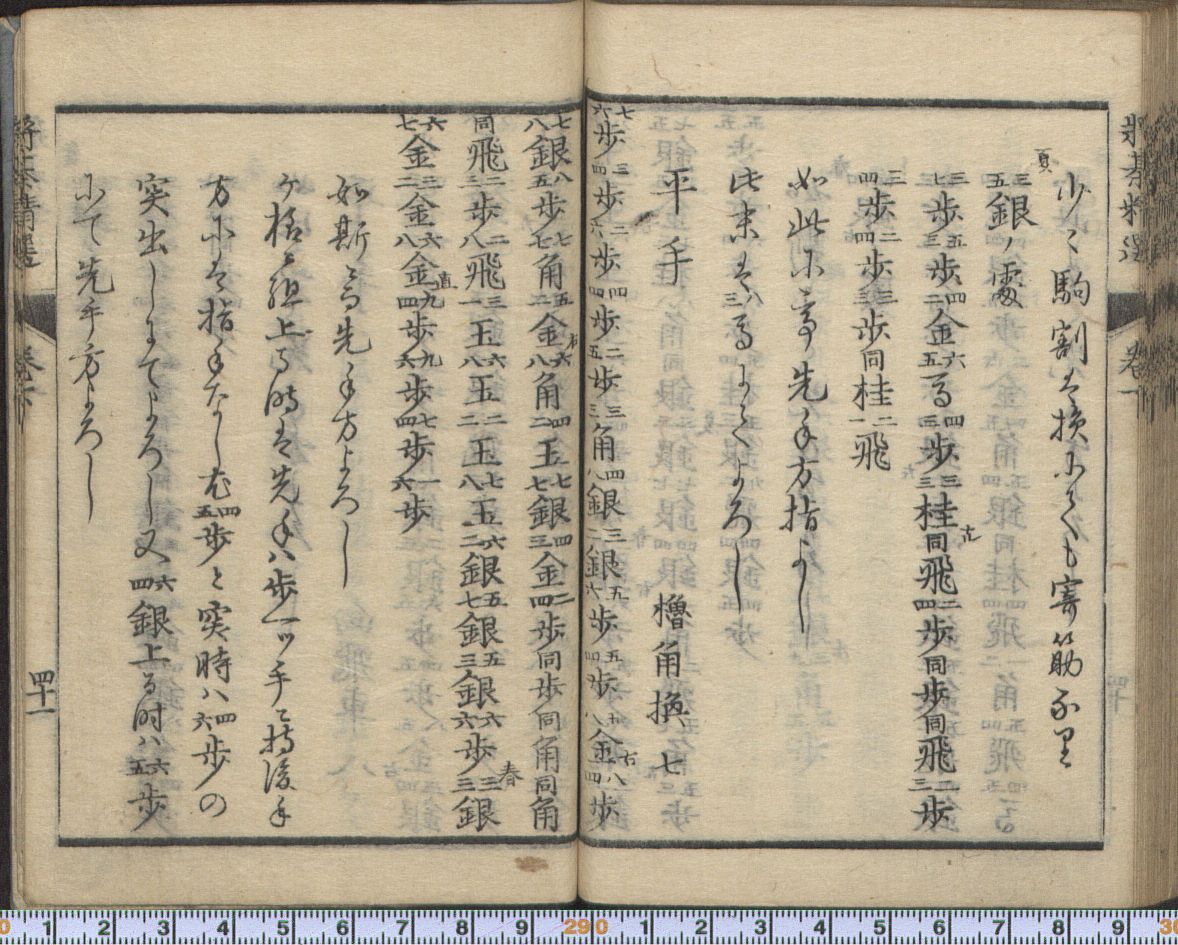 将棊精選 卷一
少〻駒割は損にても寄筋なり
三五銀ノ處
三七歩五三歩四二金六五馬四三歩三三桂左同飛二四歩同歩同飛二三歩
三四歩二四歩三三歩同桂二一飛
如此にて先手方指よし
此末は八三馬にてよろし
平手 櫓角換 七
七六歩三四歩二六歩四四歩二五歩三三角四八銀三二銀五六歩五四歩五八金右八四歩
七八銀八五歩七七角五二金右六八角四二玉七七銀四三金二四歩同歩同角同角
同飛二三歩二八飛三一玉六八玉二二玉七八玉六二銀五七銀五三銀六六歩三三銀
六七金三二金六八金直九四歩九六歩七四歩一六歩
如斯にて先手方よろし
ケ程に組上る時は先手ハ歩一ッ手に持後手
方には指手なし尤四五歩と突時ハ四六歩の
突出しにてよろし又六四銀上る時ハ六五歩
にて先手方よろし
四十一